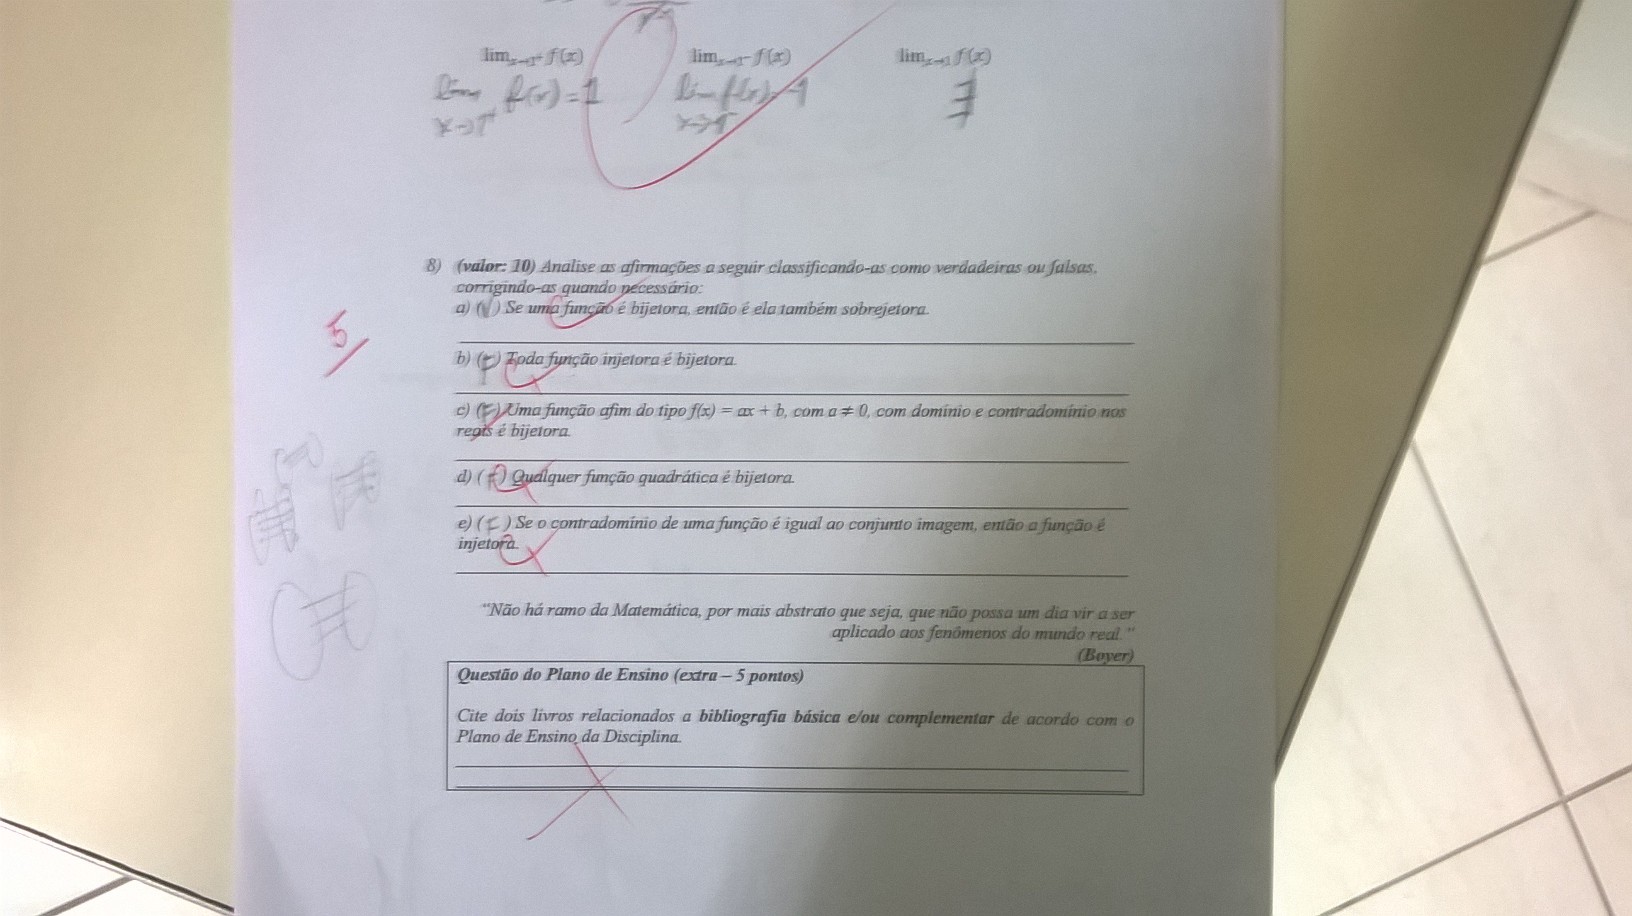 lim x→1⁺ f(x) lim x→1⁻ f(x) lim x→1 f(x)
lim f(x) = 1 lim f(x) ∄
x→1⁺ x→1⁻
8) (valor: 10) Analise as afirmações a seguir classificando-as como verdadeiras ou falsas,
corrigindo-as quando necessário:
a) (V) Se uma função é bijetora, então é ela também sobrejetora.
5
b) (F) Toda função injetora é bijetora.
c) (F) Uma função afim do tipo f(x) = ax + b, com a ≠ 0, com domínio e contradomínio nos
reais é bijetora.
d) (F) Qualquer função quadrática é bijetora.
e) (F) Se o contradomínio de uma função é igual ao conjunto imagem, então a função é
injetora.
"Não há ramo da Matemática, por mais abstrato que seja, que não possa um dia vir a ser
aplicado aos fenômenos do mundo real."
(Boyer)
Questão do Plano de Ensino (extra – 5 pontos)
Cite dois livros relacionados a bibliografia básica e/ou complementar de acordo com o
Plano de Ensino da Disciplina.